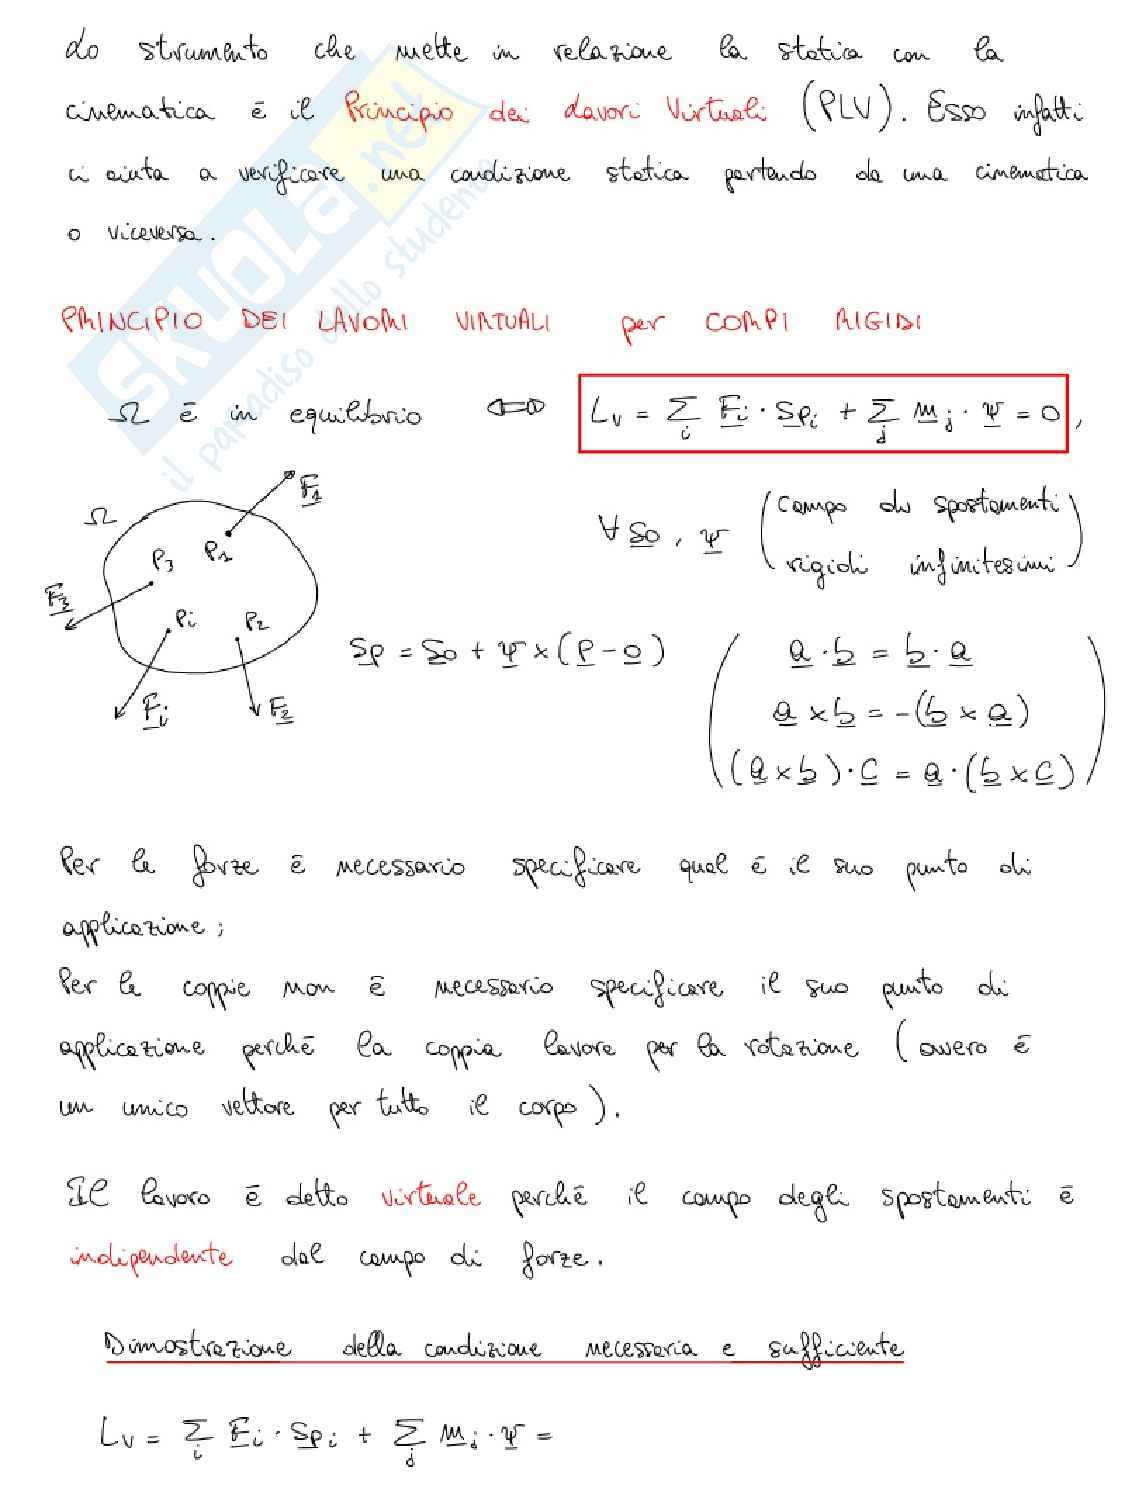 Lo strumento che mette in relazione la statica con la
cinematica è il Principio dei Lavori Virtuali (PLV). Esso infatti
ci aiuta a verificare una condizione statica partendo da una cinematica
o viceversa.
PRINCIPIO DEI LAVORI VIRTUALI per CORPI RIGIDI
Ω è in equilibrio ⟺ Lv = Σi Fi · Spi + Σj mj · Ψ = 0 ,
Ω F1
P3 P1
F3
Pi P2
Fi F2
∀ So , Ψ (campo di spostamenti
rigidi infinitesimi)
Sp = So + Ψ × (P - O)
( a · b = b · a
a × b = -(b × a)
(a × b) · c = a · (b × c) )
Per le forze è necessario specificare qual è il suo punto di
applicazione;
Per le coppie non è necessario specificare il suo punto di
applicazione perchē la coppia lavora per la rotazione (ovvero è
un unico vettore per tutto il corpo).
Il lavoro è detto virtuale perchē il campo degli spostamenti è
indipendente dal campo di forze.
Dimostrazione della condizione necessaria e sufficiente
Lv = Σi Fi · Spi + Σj mj · Ψ =
SKUOLA.net
il paradiso dello studente